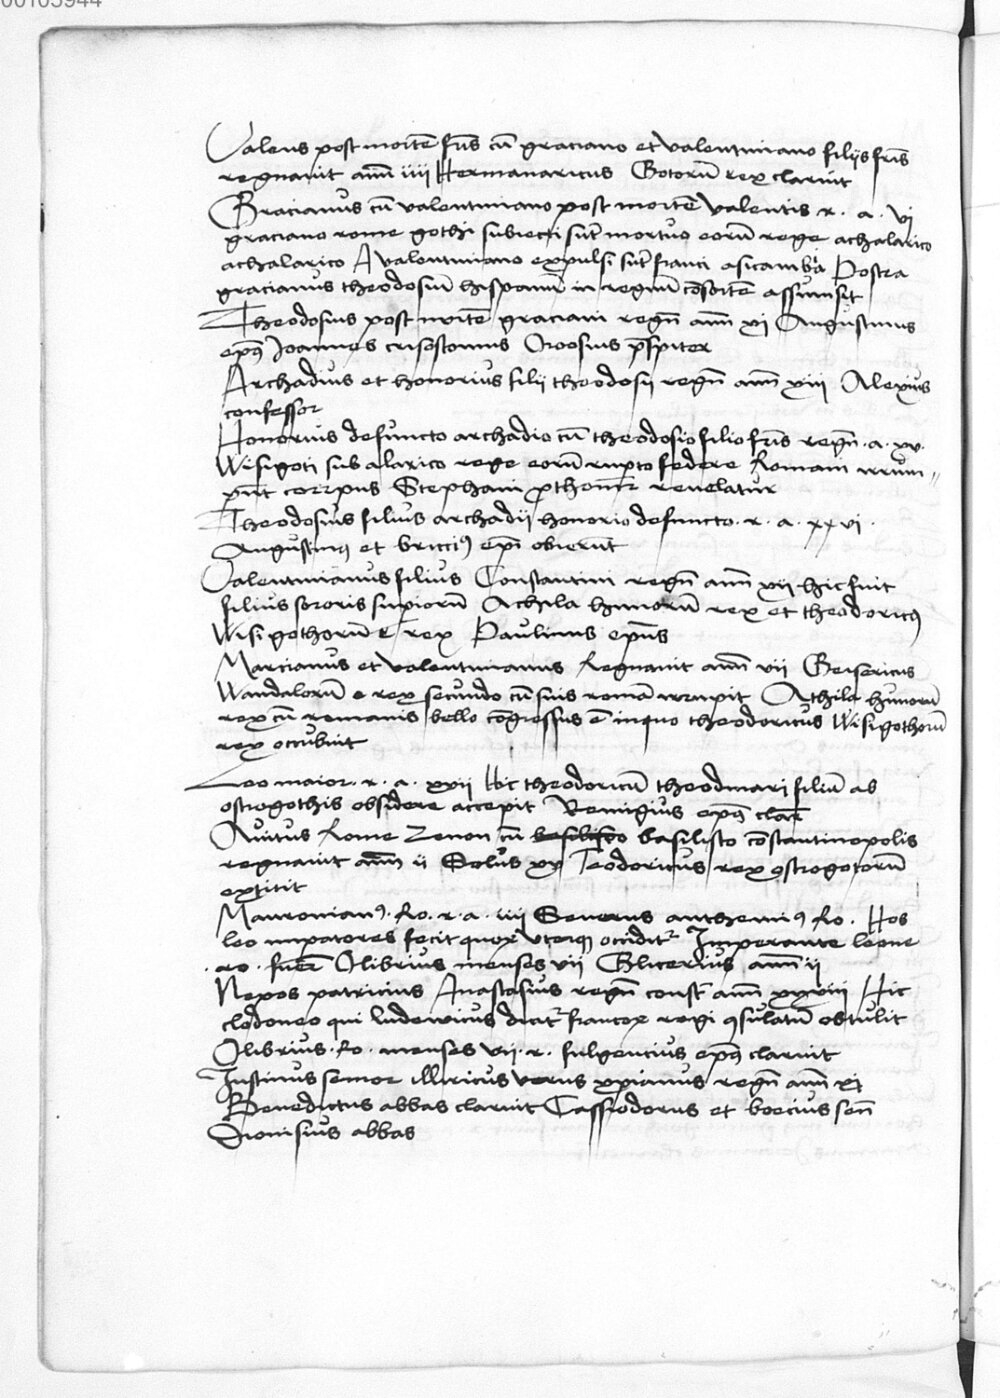 00105944
Valens post mortē fr̄is cū graciano et valentiniano filijs fr̄is
regnavit ann̄ iiii Hermanaricus Gotorū rex claruit
Gracianus cū valentiniano post mortē valentis r. a. vi
graciano rome gothi subiecti sūt mortuo eorū rege athalarico
athalarico A valentiniano expulsi sūt franci a sicambria Postea
gracianus theodosiū hispanū in regnū cōsortē assumsit
Theodosius post mortē graciani regn̄ ann̄ xi Augustinus
ep̄us Joannes crisostomus Orosius p̄sbiter
Archadius et honorius filii theodosij regn̄ ann̄ xiii Alexius
confessor
Honorius defuncto archadio cū theodosio filio fr̄is regn̄. a. xv.
Wisigoti sub alarico rege eorū rupto federe Romam irrum=
pūt corpus Stephani prothom̄r revelatur
Theodosius filius archadij honorio defuncto. r. a. xxvi.
Augustinꝰ et bricciꝰ ep̄i obierūt
Valentinianus filius Constantini regn̄ ann̄ vii hic fuit
filius sororis supiorū Athila hunorū rex et theodoricꝰ
Wisigothorū rex Paulinus ep̄us
Marcianus et valentinianus Regnavit ann̄ vii Geisericus
Wandalorū rex secundo cū suis romā irrupit Athila hunorū
rex cū romanis bello cōgressus ē in quo theodoricus Wisigothorū
rex occubuit
Leo maior. r. a. xvii Hic theodoricū theodmari filiū ab
ostrogothis obsidere accepit Remigius ep̄us clar̄
Avitus Rome Zenon cū basilisto cōstantinopolis
regnavit ann̄ ii Solus xv Teodoricus rex ostrogotorū
extitit
Mauronianꝰ. Ro. r. a. iiij Severus anthemiꝰ Ro. Hos
leo imp̄atores fecit quoꝝ uterqꝫ occidit᷑ Imperante leone
. ro. fuer̄ Olibrius menses vii Glicerius ann̄ ii
Nepos patricius Anastasius regn̄ const̄ ann̄ xxviii Hic
clodoneo qui ludewicus dicit᷑ francoꝝ regi ꝯsulatū obtulit
Olibrius. Ro. menses vii. r. fulgencius ep̄us claruit
Justinus senior illiricus verus xpianus regn̄ ann̄ xi
Benedictus abbas claruit Cassiodorus et boecius sen̄
Dionisius abbas